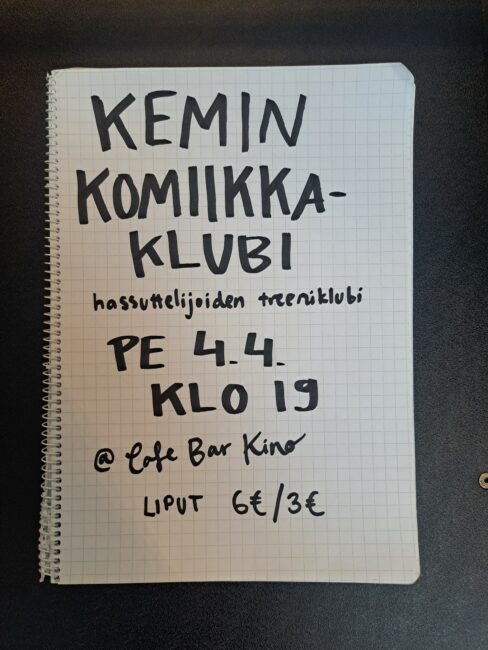 KEMIN
KOMIIKKA-
KLUBI
hassuttelijoiden treeniklubi
PE 4.4.
KLO 19
@ Cafe Bar Kino
LIPUT 6€/3€